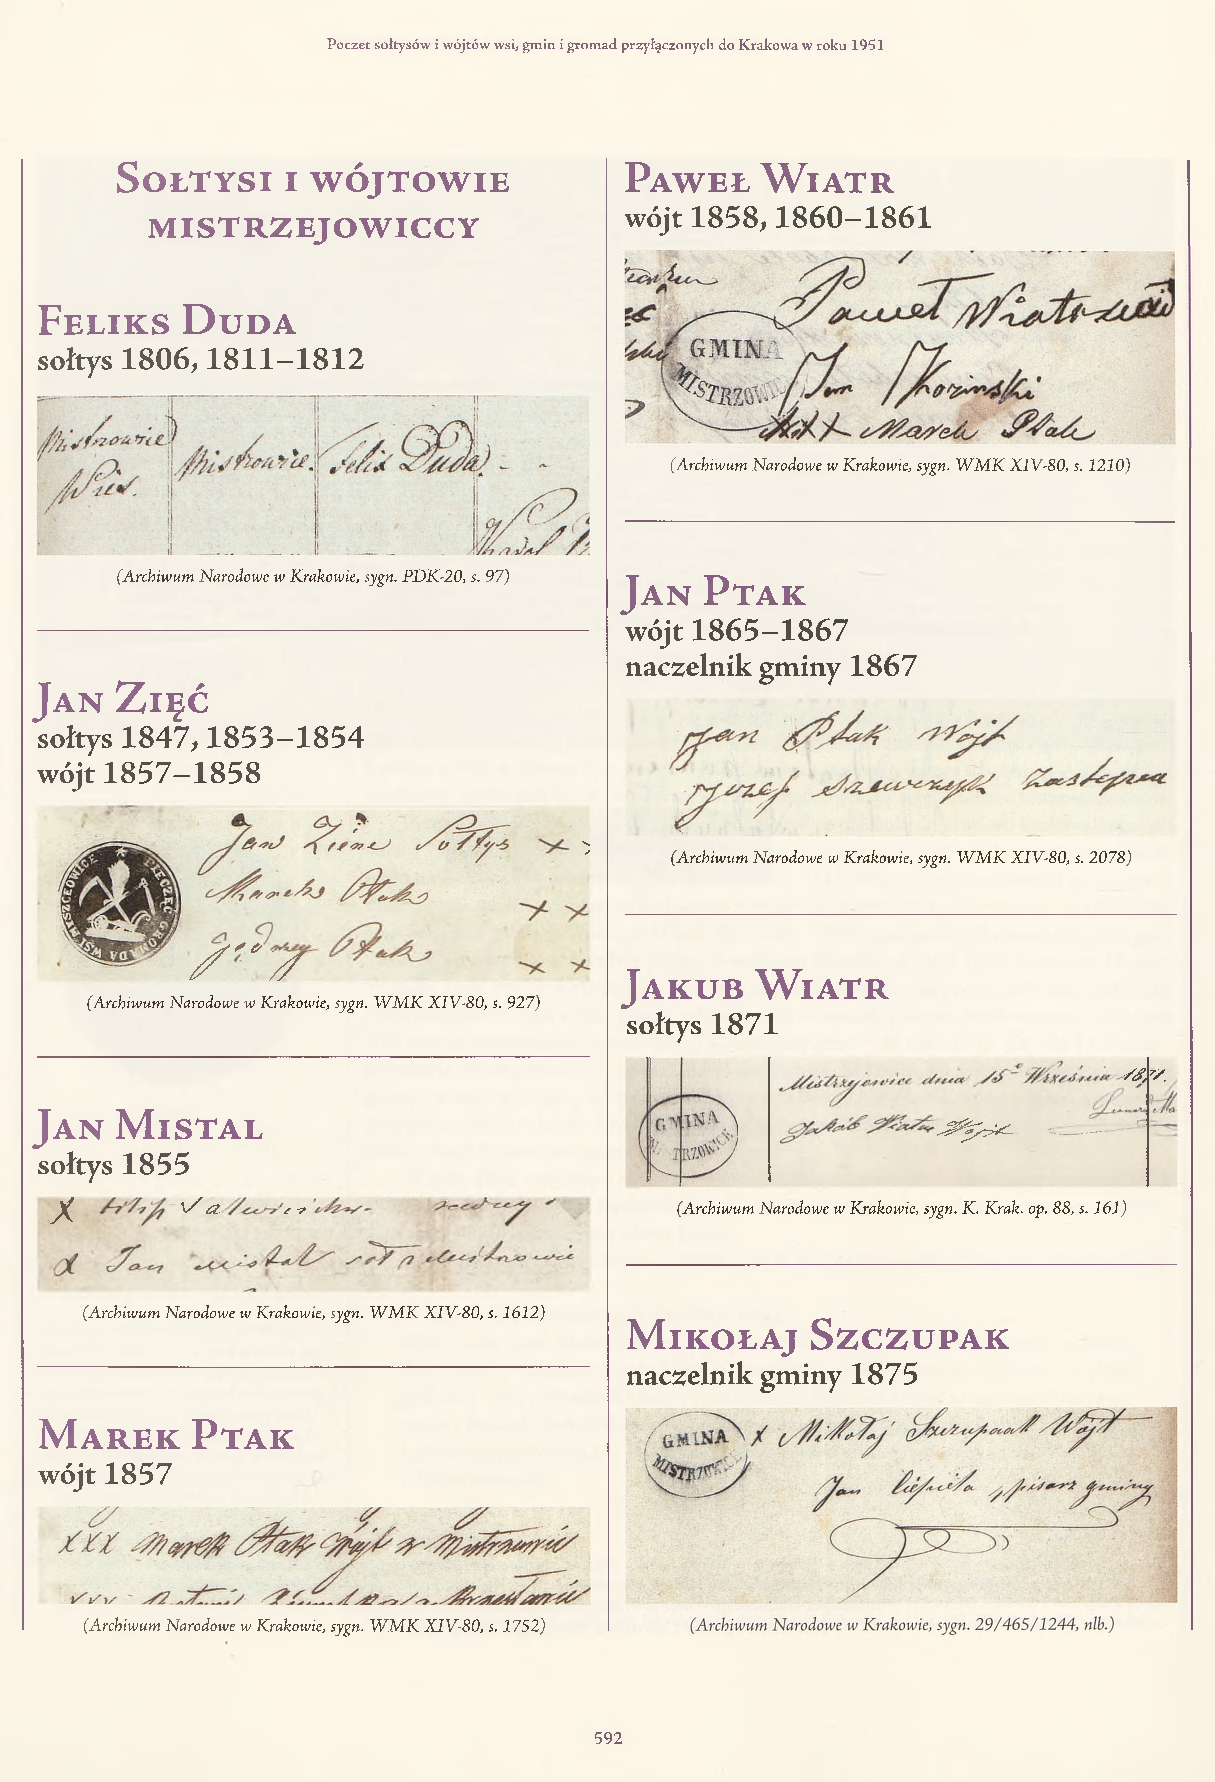 Poczet sołtysów i wójtów wsi, gmin i gromad przyłączonych do Krakowa w roku 1951
Sołtysi i wójtowie
mistrzejowiccy
Feliks Duda
sołtys 1806, 1811–1812
Mistrowice Mistrowice. Felix Duda
Wieś.
(Archiwum Narodowe w Krakowie, sygn. PDK-20, s. 97)
Jan Zięć
sołtys 1847, 1853–1854
wójt 1857–1858
Jan Zięnc Sołtys x
Marek Ptak x x
Jędrzey Ptak x x
PIECZĘĆ GROMADA WSI
(Archiwum Narodowe w Krakowie, sygn. WMK XIV-80, s. 927)
Jan Mistal
sołtys 1855
X Filip
X Jan Mistal
(Archiwum Narodowe w Krakowie, sygn. WMK XIV-80, s. 1612)
Marek Ptak
wójt 1857
xxx Marek Ptak Wójt w Mistrzowic
(Archiwum Narodowe w Krakowie, sygn. WMK XIV-80, s. 1752)
Paweł Wiatr
wójt 1858, 1860–1861
Paweł
GMINA
MISTRZOWIC
Jan Kozinski
Marek Ptak
(Archiwum Narodowe w Krakowie, sygn. WMK XIV-80, s. 1210)
Jan Ptak
wójt 1865–1867
naczelnik gminy 1867
Jan Ptak Wójt
Jozef Szewczyk Zastępca
(Archiwum Narodowe w Krakowie, sygn. WMK XIV-80, s. 2078)
Jakub Wiatr
sołtys 1871
Mistrzejowice dnia 15º Września 1871.
GMINA
MISTRZOWICE
Jakób Wiatr Wojt
(Archiwum Narodowe w Krakowie, sygn. K. Krak. op. 88, s. 161)
Mikołaj Szczupak
naczelnik gminy 1875
GMINA
MISTRZOWICE
x Mikołaj Szczupaak Wójt
Jan Ciepiela, pisarz gminy
(Archiwum Narodowe w Krakowie, sygn. 29/465/1244, nlb.)
592